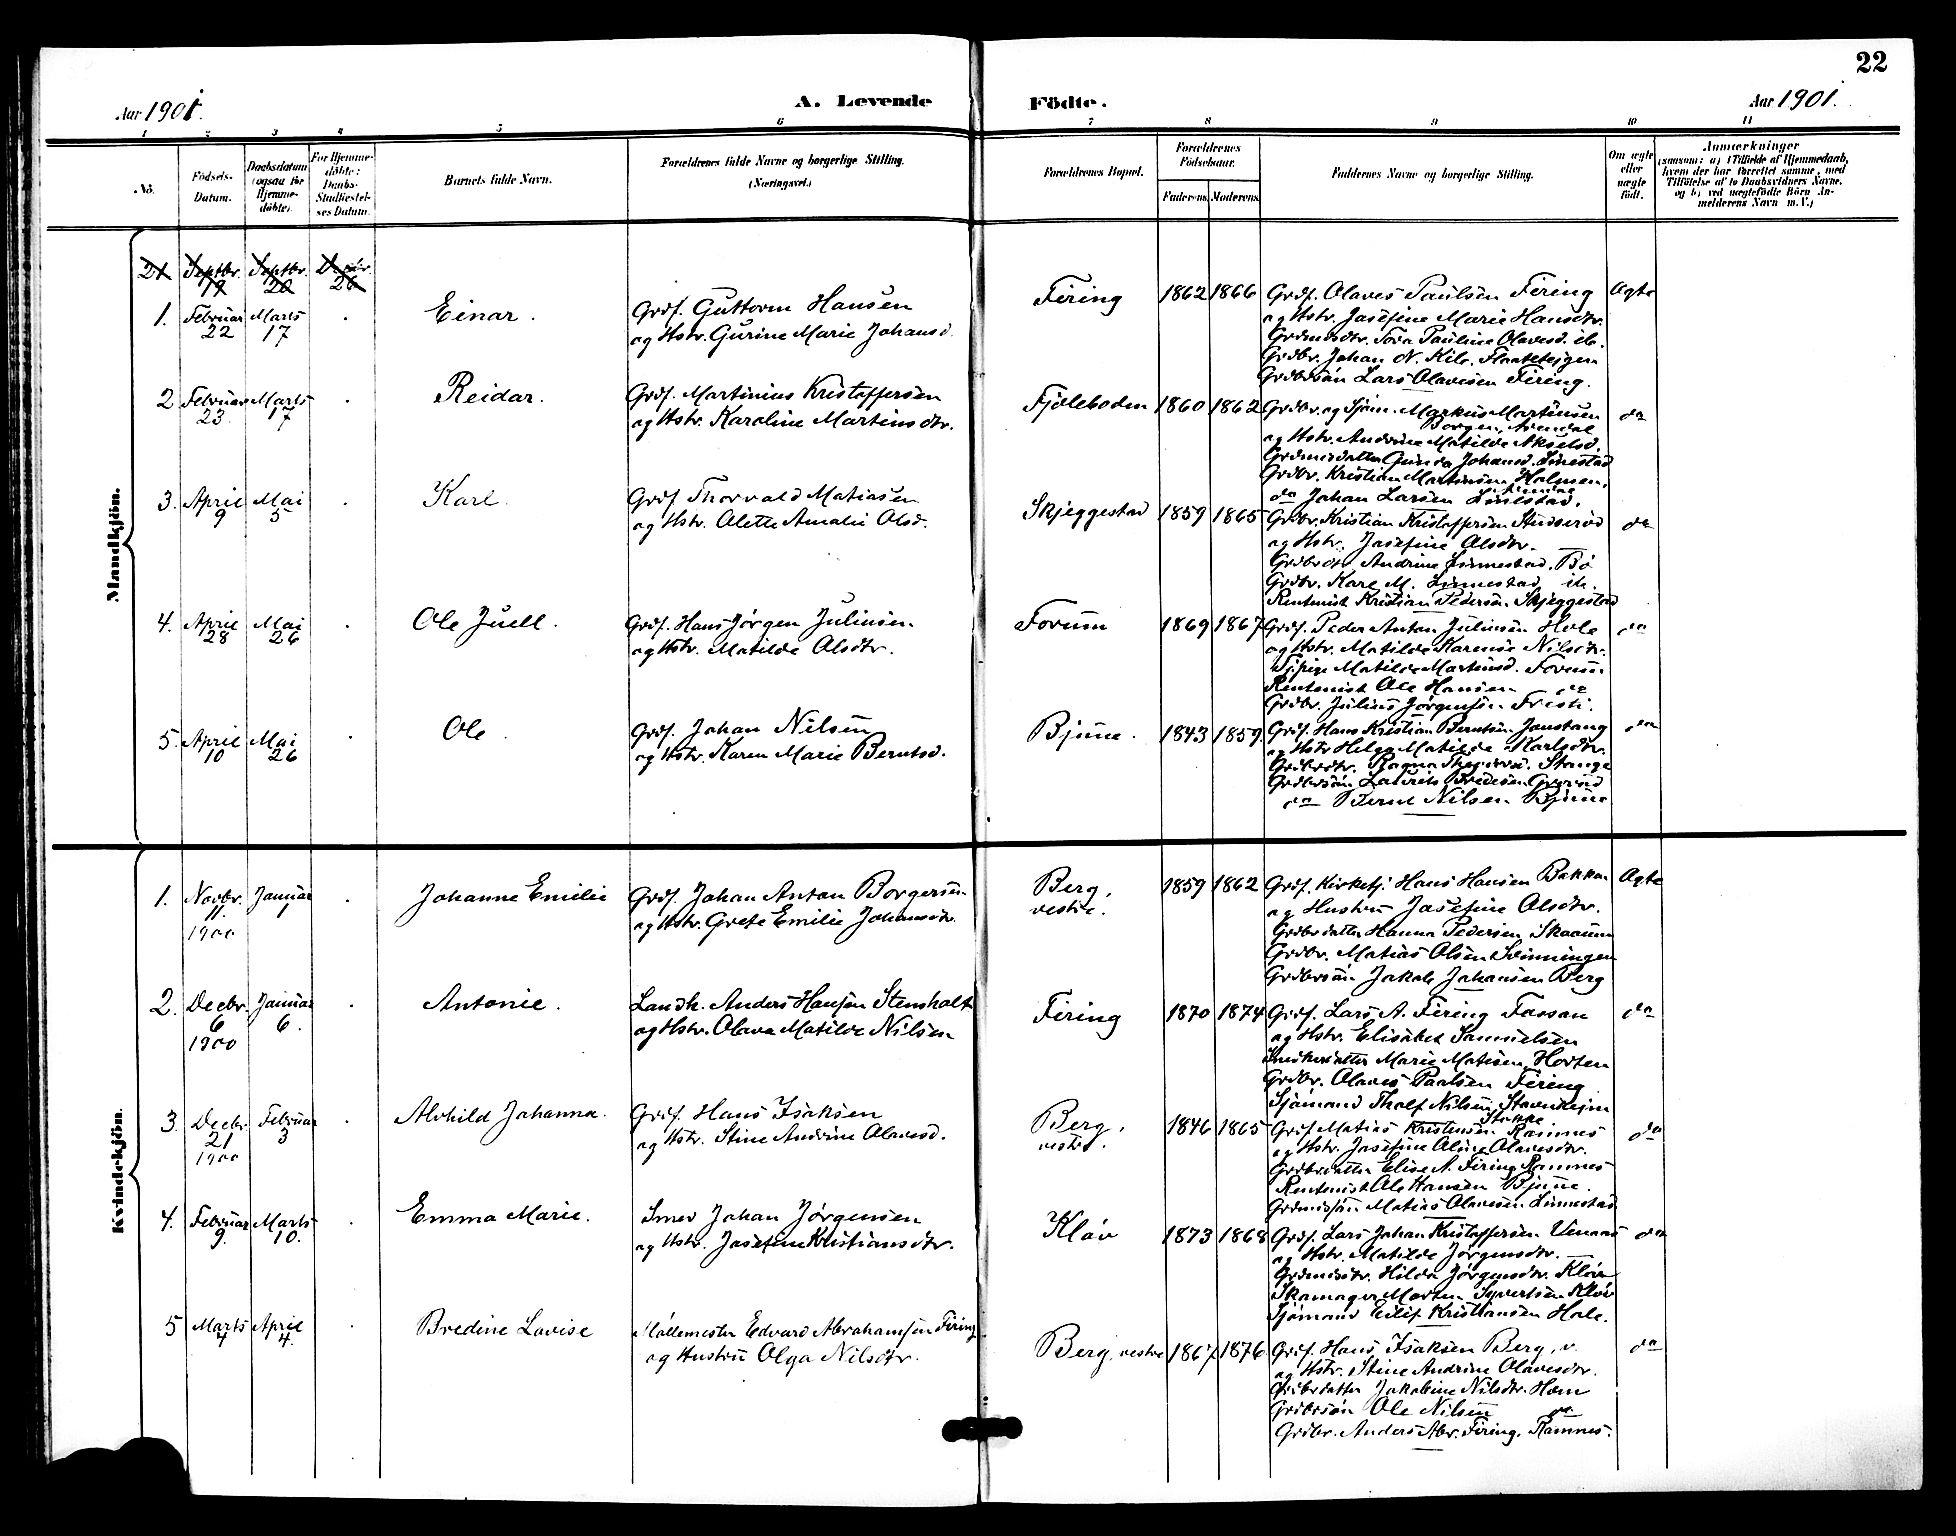 22
Aar 1901.
A. Levende Födte.
Aar 1901.
1 2 3 4 5 6 7 8 9 10 11
No.
Födsels-
Datum.
Daabsdatum
(ogsaa for
Hjemme-
døbte).
For Hjemme-
døbte:
Daabs-
Stadfæstel-
ses Datum.
Barnets fulde Navn.
Forældrenes fulde Navne og borgerlige Stilling.
(Næringsvei.)
Forældrenes Bopæl.
Forældrenes
Födselsaar.
Faderens. Moderens.
Faddernes Navne og borgerlige Stilling.
Om ægte
eller
uægte
født.
Anmærkninger
(saasom: a) i Tilfælde af Hjemmedaab,
hvem der har forrettet samme, med
Tilföielse af to Daabsvidners Navne,
og b) ved uægtefödte Börn An-
melderens Navn m. V.)
Mandkjön.
21 Septbr. 19 Septbr. 20 26
1. Februar 22 Marts 17 . Einar.
Grdf. Guttorm Hansen
og Hstr. Gurine Marie Johansd.
Firing 1862 1866
Grdf. Olaves Paulsen Firing Ægte
og Hstr. Josefine Marie Hansdtr.
Grdmdsdtr. Tora Pauline Olavesd. ib.
Grdbr. Johan N. Kile. Flaatetejgen
Grdbrsön Lars Olavesen Firing.
2 Februar 23 Marts 17 . Reidar.
Grdf. Martinius Kristoffersen
og Hstr. Karoline Martinsdtr.
Fjøleboden 1860 1862
Grdbr. og Sjöm. Markus Martinsen do
Borgen, Arendal
og Hstr. Andrine Matilde Akselsd.
Grdmdsdatter Gunda Johansd. Linestad
Grdbr. Kristian Martinsen Holmen,
do Johan Larsen Linestad.
3. April 9 Mai 5 . Karl.
Grdf Thorvald Matiasen
og Hstr. Olette Amalie Olsd.
Skjeggestad 1859 1865
Grdbr. Kristian Kristoffersen do
og Hstr. Josefine Olsdtr.
Grdbrdtr. Andrine Linnestad. Bö
Grdbr. Karl M. Linnestad ib.
Rentenist Kristian Pedersen Skjeggestad
4. April 28 Mai 26 . Ole Juell.
Grdf. Hans Jørgen Juliusen
og Hstr. Matilde Olsdtr.
Forum 1869 1867
Grdf. Peder Anton Juliusen Hole do
og Hstr. Matilde Karense Nilsdtr.
Tjpige Matilde Martinsd. Forum
Rentenist Ole Hansen do
Grdbr. Julius Jørgensen Fresti.
5. April 10 Mai 26 . Ole.
Grdf. Johan Nilsen
og Hstr. Karen Marie Berntsd.
Bjune. 1843 1859.
Grdf. Hans Kristian Berntsen Jonstang do
og Hstr Helga Matilde Karlsdtr.
Grdbrdtr. Ragna Stange
Grdbrsön Laurits Bredesen
do Bernt Nilsen Bjune
Kvindekjön.
1. Novbr. 11. 1900 Januar 1 . Johanne Emilie
Grdf. Johan Anton Borgersen
og Hstr. Grete Emilie Johansdtr.
Berg, vestre. 1859 1862
Grdf. Kirketj. Hans Hansen Bakken Ægte
og Hustru Josefine Olsdtr.
Grdbrdatter Hanna Pedersen Skaaum
Grdbr. Matias Olsen Svinningen
Grdbrsön Jakob Johansen Berg
2. Decbr. 6 1900 Januar 6. . Antonie.
Landh. Anders Hansen Stensholt
og Hstr. Olava Matilde Nilsen
Firing 1870 1874
Grdf. Lars A. Firing Fossan do
og Hstr. Elisabet Samuelsen
Snekkerdatter Marie Matisen, Horten
Grdbr. Olaves Paulsen Firing
Sjömand Tholf Nilsen, Stokke
3. Decbr. 21 1900 Februar 3 . Alvhild Johanna.
Grdf. Hans Isaksen
og Hstr. Stine Andrine Olavesd.
Berg, vestre. 1846 1865
Grdf Matias Kristensen Ramnes do
og Hstr. Josefine Aline Olavesdtr.
Grdbrdatter Elise A. Firing Ramnes
Rentenist Ole Hansen Bjune.
Grdmdssön Matias Olavesen Linnestad
4. Februar 9. Marts 10. . Emma Marie.
Smed Johan Jørgensen
og Hstr. Josefine Kristiansdtr.
Kløv 1873 1868
Grdf. Lars Johan Kristoffersen Unnaas do
og Hstr. Matilde Jørgensdtr.
Grdmdsdtr. Hilda Jørgensdtr. Kløv
Skomager Morten Syvertsen Kløv
Sjömand Eilif Kristiansen Hole.
5 Marts 4 April 4. . Bredine Lovise
Møllemester Edvard Abrahamsen Firing
og Hustru Olga Nilsdtr.
Berg, vestre 1867 1876
Grdf. Hans Isaksen Berg, v. do
og Hstr. Stine Andrine Olavesdtr.
Grdbrdatter Jakobine Nilsdtr. Hem
Grdbrsön Ole Nilsen do
Grdbr. Anders Abr. Firing. Ramnes.